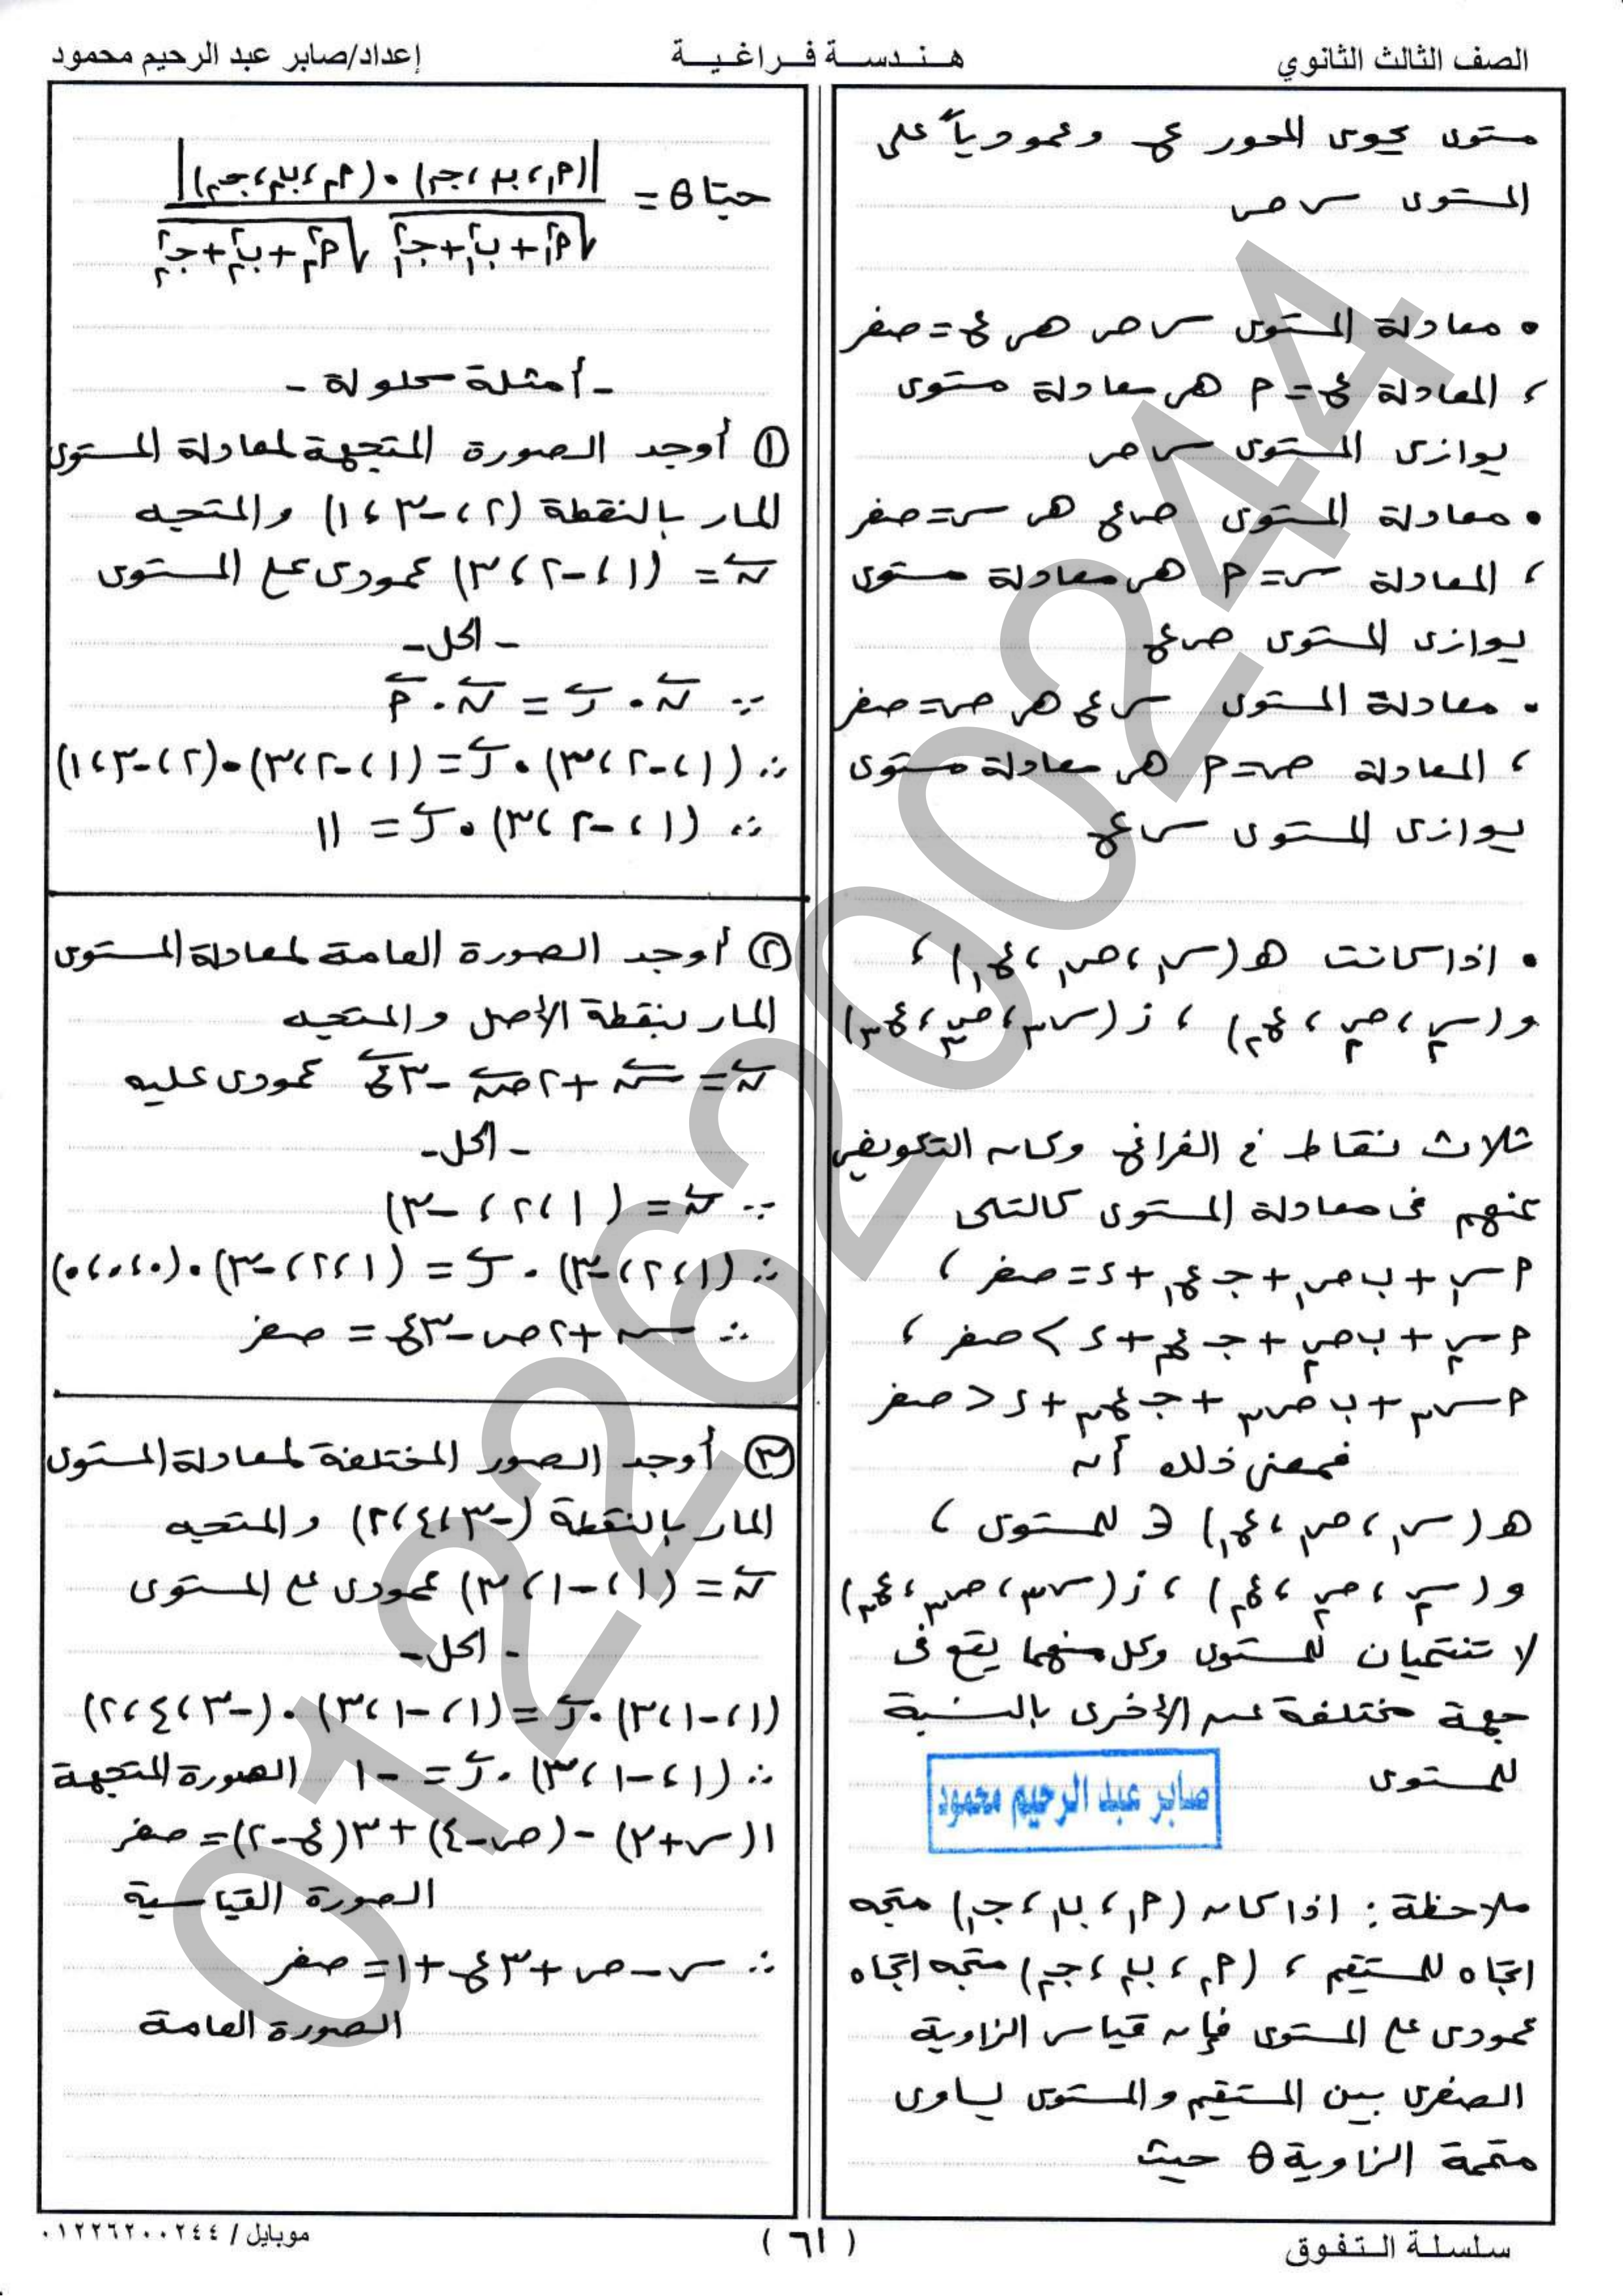 الصف الثالث الثانوي
هـنـدسـة فـراغـيـة
إعداد/صابر عبد الرحيم محمود
مستوى يحوى المحور ع وعمودياً على
المستوى س ص
• معادلة المستوى س ص هى ع = صفر
، المعادلة ع = م هى معادلة مستوى
يوازى المستوى س ص
• معادلة المستوى ص ع هى س = صفر
، المعادلة س = م هى معادلة مستوى
يوازى المستوى ص ع
• معادلة المستوى س ع هى ص = صفر
، المعادلة ص = م هى معادلة مستوى
يوازى المستوى س ع
• اذا كانت هـ (س١ ، ص١ ، ع١) ،
و (س٢ ، ص٢ ، ع٢) ، ز (س٣ ، ص٣ ، ع٣)
ثلاث نقاط فى الفراغ وكان التعويض
عنهم فى معادلة المستوى كالتالى
م س١ + ب ص١ + جـ ع١ + د = صفر ،
م س٢ + ب ص٢ + جـ ع٢ + د > صفر ،
م س٣ + ب ص٣ + جـ ع٣ + د < صفر
فمعنى ذلك أن
هـ (س١ ، ص١ ، ع١) ∈ للمستوى ،
و (س٢ ، ص٢ ، ع٢) ، ز (س٣ ، ص٣ ، ع٣)
لا تنتميان للمستوى وكل منهما يقع فى
جهة مختلفة عن الأخرى بالنسبة
للمستوى
صابر عبد الرحيم محمود
ملاحظة : اذا كان (م١ ، ب١ ، جـ١) متجه
اتجاه للمستقيم ، (م٢ ، ب٢ ، جـ٢) متجه اتجاه
عمودى على المستوى فإن قياس الزاوية
الصغرى بين المستقيم والمستوى يساوى
متممة الزاوية θ حيث
حتا θ = |(م١ ، ب١ ، جـ١) • (م٢ ، ب٢ ، جـ٢)| / √(م١² + ب١² + جـ١²) √(م٢² + ب٢² + جـ٢²)
- أمثلة محلولة -
① أوجد الصورة المتجهة لمعادلة المستوى
المار بالنقطة (٢ ، -٣ ، ١) والمتجه
ن = (١ ، -٢ ، ٣) عمودى على المستوى
- الحل -
∵ ن • ر = ن • م
∴ (١ ، -٢ ، ٣) • ر = (١ ، -٢ ، ٣) • (٢ ، -٣ ، ١)
∴ (١ ، -٢ ، ٣) • ر = ١١
② أوجد الصورة العامة لمعادلة المستوى
المار بنقطة الأصل والمتجه
ن = س + ٢ ص - ٣ ع عمودى عليه
- الحل -
∵ ن = (١ ، ٢ ، -٣)
∴ (١ ، ٢ ، -٣) • ر = (١ ، ٢ ، -٣) • (٠ ، ٠ ، ٠)
∴ س + ٢ ص - ٣ ع = صفر
③ أوجد الصور المختلفة لمعادلة المستوى
المار بالنقطة (-٣ ، ٤ ، ٢) والمتجه
ن = (١ ، -١ ، ٣) عمودى على المستوى
- الحل -
(١ ، -١ ، ٣) • ر = (١ ، -١ ، ٣) • (-٣ ، ٤ ، ٢)
∴ (١ ، -١ ، ٣) • ر = -١ الصورة المتجهة
١(س + ٣) - (ص - ٤) + ٣(ع - ٢) = صفر
الصورة القياسية
∴ س - ص + ٣ ع + ١ = صفر
الصورة العامة
سلسلة التفوق
( ٦١ )
موبايل / ٠١٢٢٦٢٠٠٢٤٤
01226200244